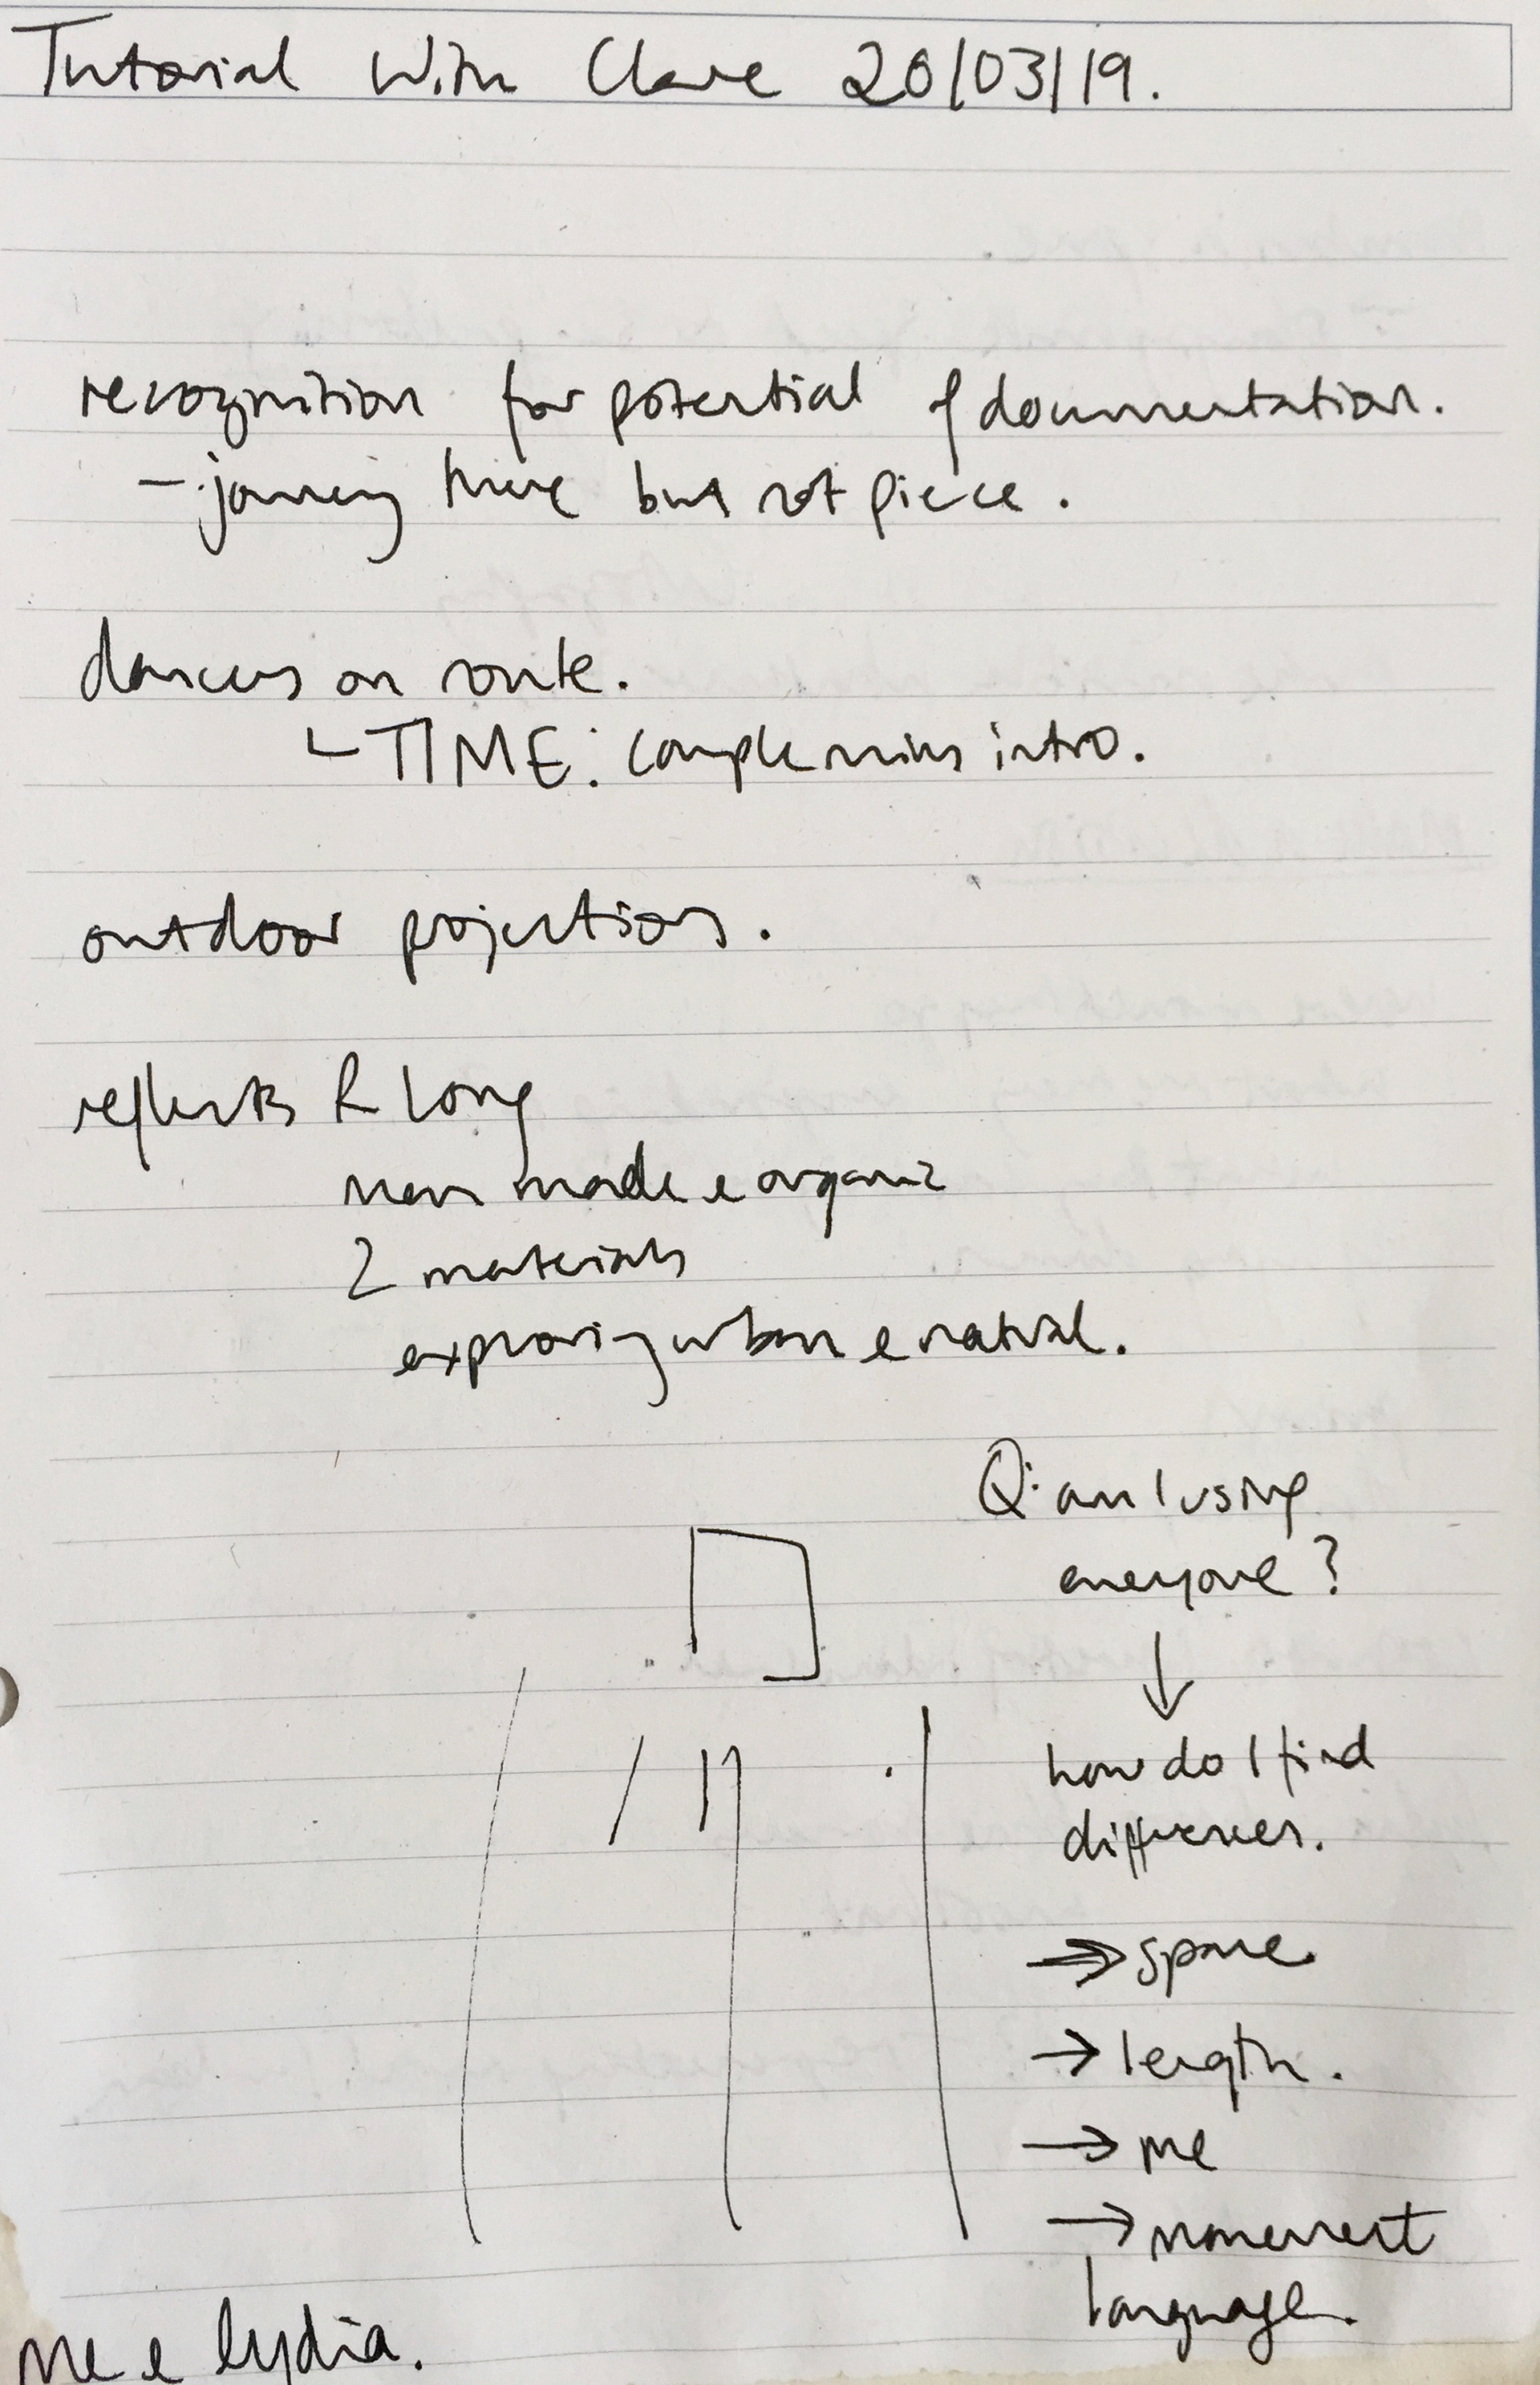 Tutorial With Clare 20/03/19.
recognition for potential of documentation.
- journey there but not piece.
dancers on route.
TIME: intro.
outdoor projections.
reflects R Long
man made e organic
2 materials
exploring urban e natural.
Q: am I using
everyone?
how do I find
differences.
→ space
→ length.
→ me
→ movement
language.
me e Lydia.